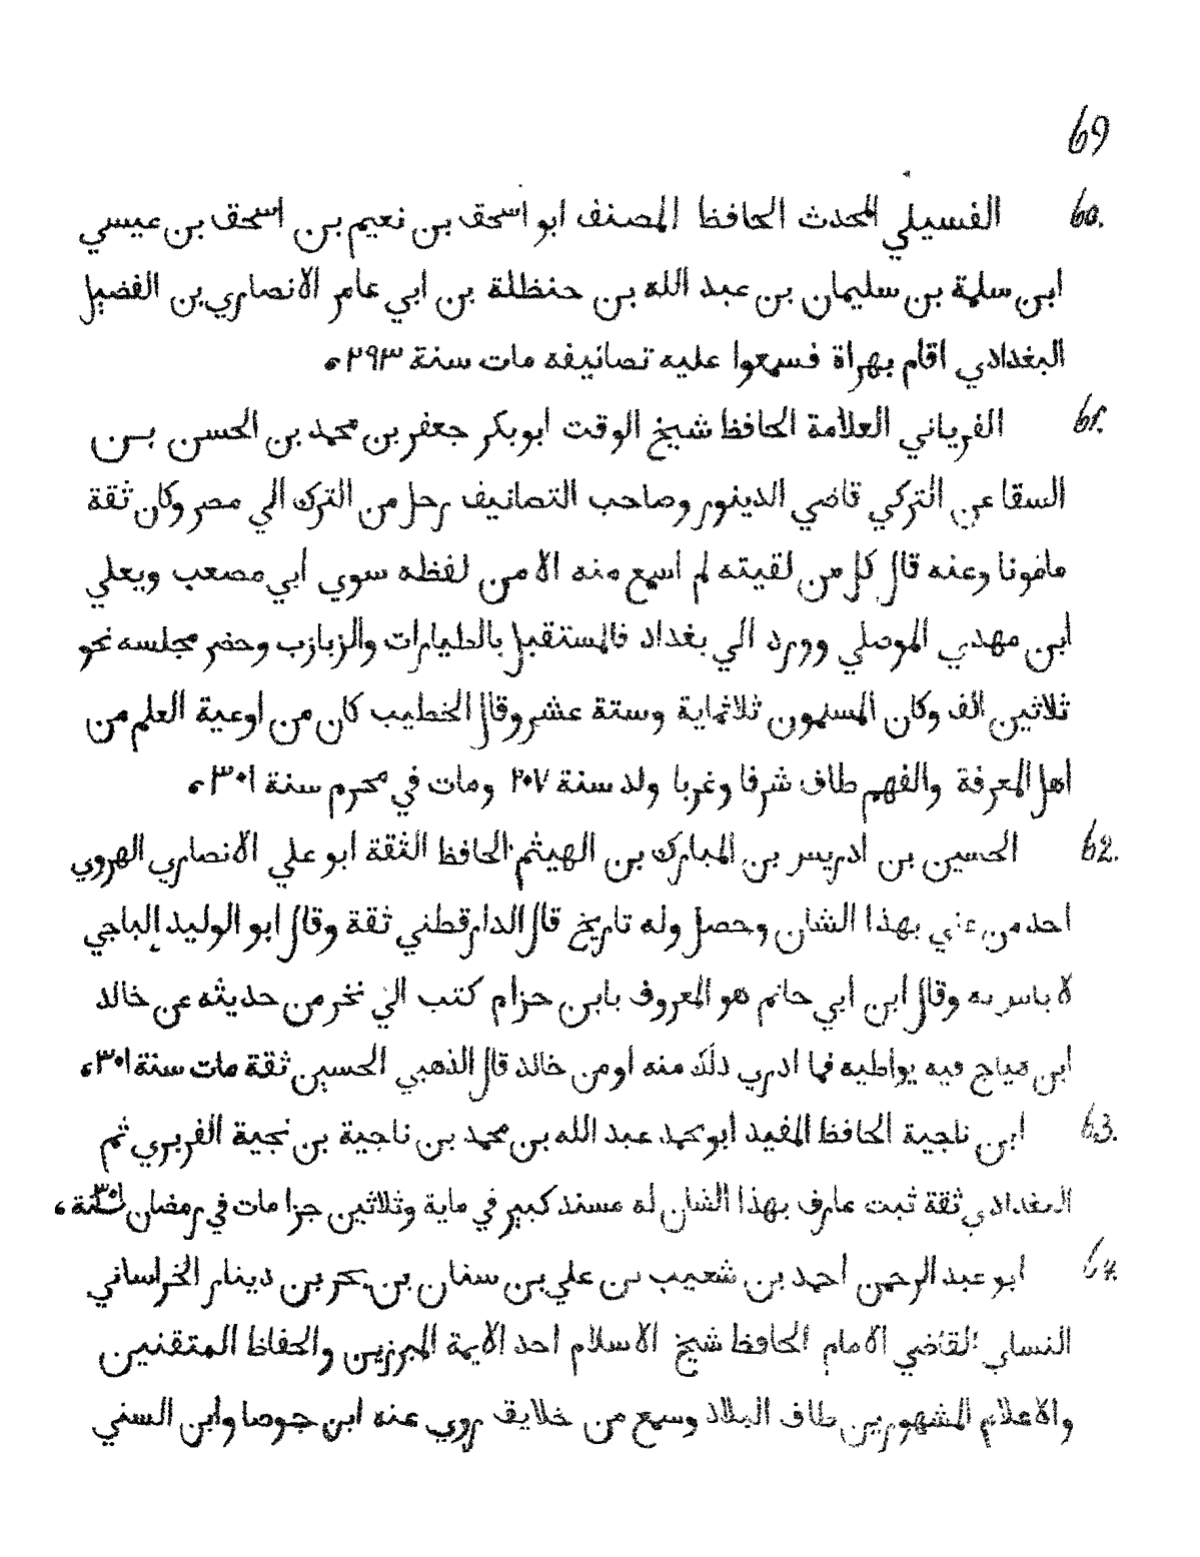 69
60. الفسيلي المحدث الحافظ المصنف ابو اسحق بن نعيم بن اسحق بن عيسي
ابن سلمة بن سليمان بن عبد الله بن حنظلة بن ابي عامر الانصاري بن الفضيل
البغدادي اقام بهراة فسمعوا عليه تصانيفه مات سنة ٢٩٣،
61. الفرياني العلامة الحافظ شيخ الوقت ابوبكر جعفر بن محمد بن الحسن بن
السقا عن التركي قاضي الدينور وصاحب التصانيف رحل من الترك الي مصر وكان ثقة
مامونا وعنه قال كل من لقيته لم اسمع منه الا من لفظه سوي أبي مصعب ويعلي
ابن مهدي الموصلي وورد الي بغداد فالمستقبل بالطيارات والزبازب وحضر مجلسه نحو
ثلاثين الف وكان المسمون ثلاثماية وستة عشر وقال الخطيب كان من اوعية العلم من
اهل المعرفة والفهم طاف شرفا وغربا ولد سنة ٢٠٧ ومات في محرم سنة ٣٠١،
62. الحسين بن ادريس بن المبارك بن الهيثم الحافظ الثقة ابو علي الانصاري الهروي
احد من عني بهذا الشان وحصل وله تاريخ قال الدارقطني ثقة وقال ابو الوليد الباجي
لا باس به وقال ابن ابي حاتم هو المعروف بابن حزام كتب الي نخر من حديثه عن خالد
ابن هياج فيه بواطيه فما ادري ذلك منه او من خالد قال الذهبي الحسين ثقة مات سنة ٣٠١،
63. ابن ناجية الحافظ المفيد ابو محمد عبد الله بن محمد بن ناجية بن نجية الفربري ثم
البغدادي ثقة ثبت عارف بهذا الشان له مسند كبير في ماية وثلاثين جزا مات في رمضان سنة ٣٠١،
64. ابو عبد الرحمن احمد بن شعيب بن علي بن سنان بن بحر بن دينار الخراساني
النساي القاضي الامام الحافظ شيخ الاسلام احد الايمة المبرزين والحفاظ المتقنين
والاعلام المشهورين طاف البلاد وسمع من خلايق روي عنه ابن جوصا وابن السني